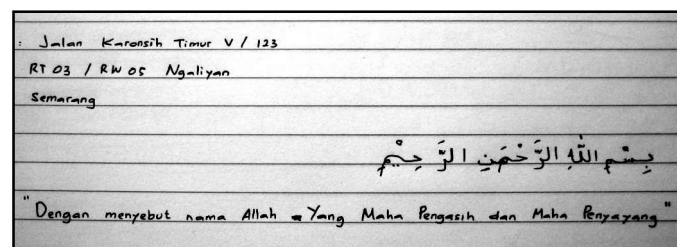 : Jalan Karonsih Timur V / 123
RT 03 / RW 05 Ngaliyan
Semarang
بِسْمِ اللّٰهِ الرَّحْمٰنِ الرَّحِيْمِ
"Dengan menyebut nama Allah Yang Maha Pengasih dan Maha Penyayang"